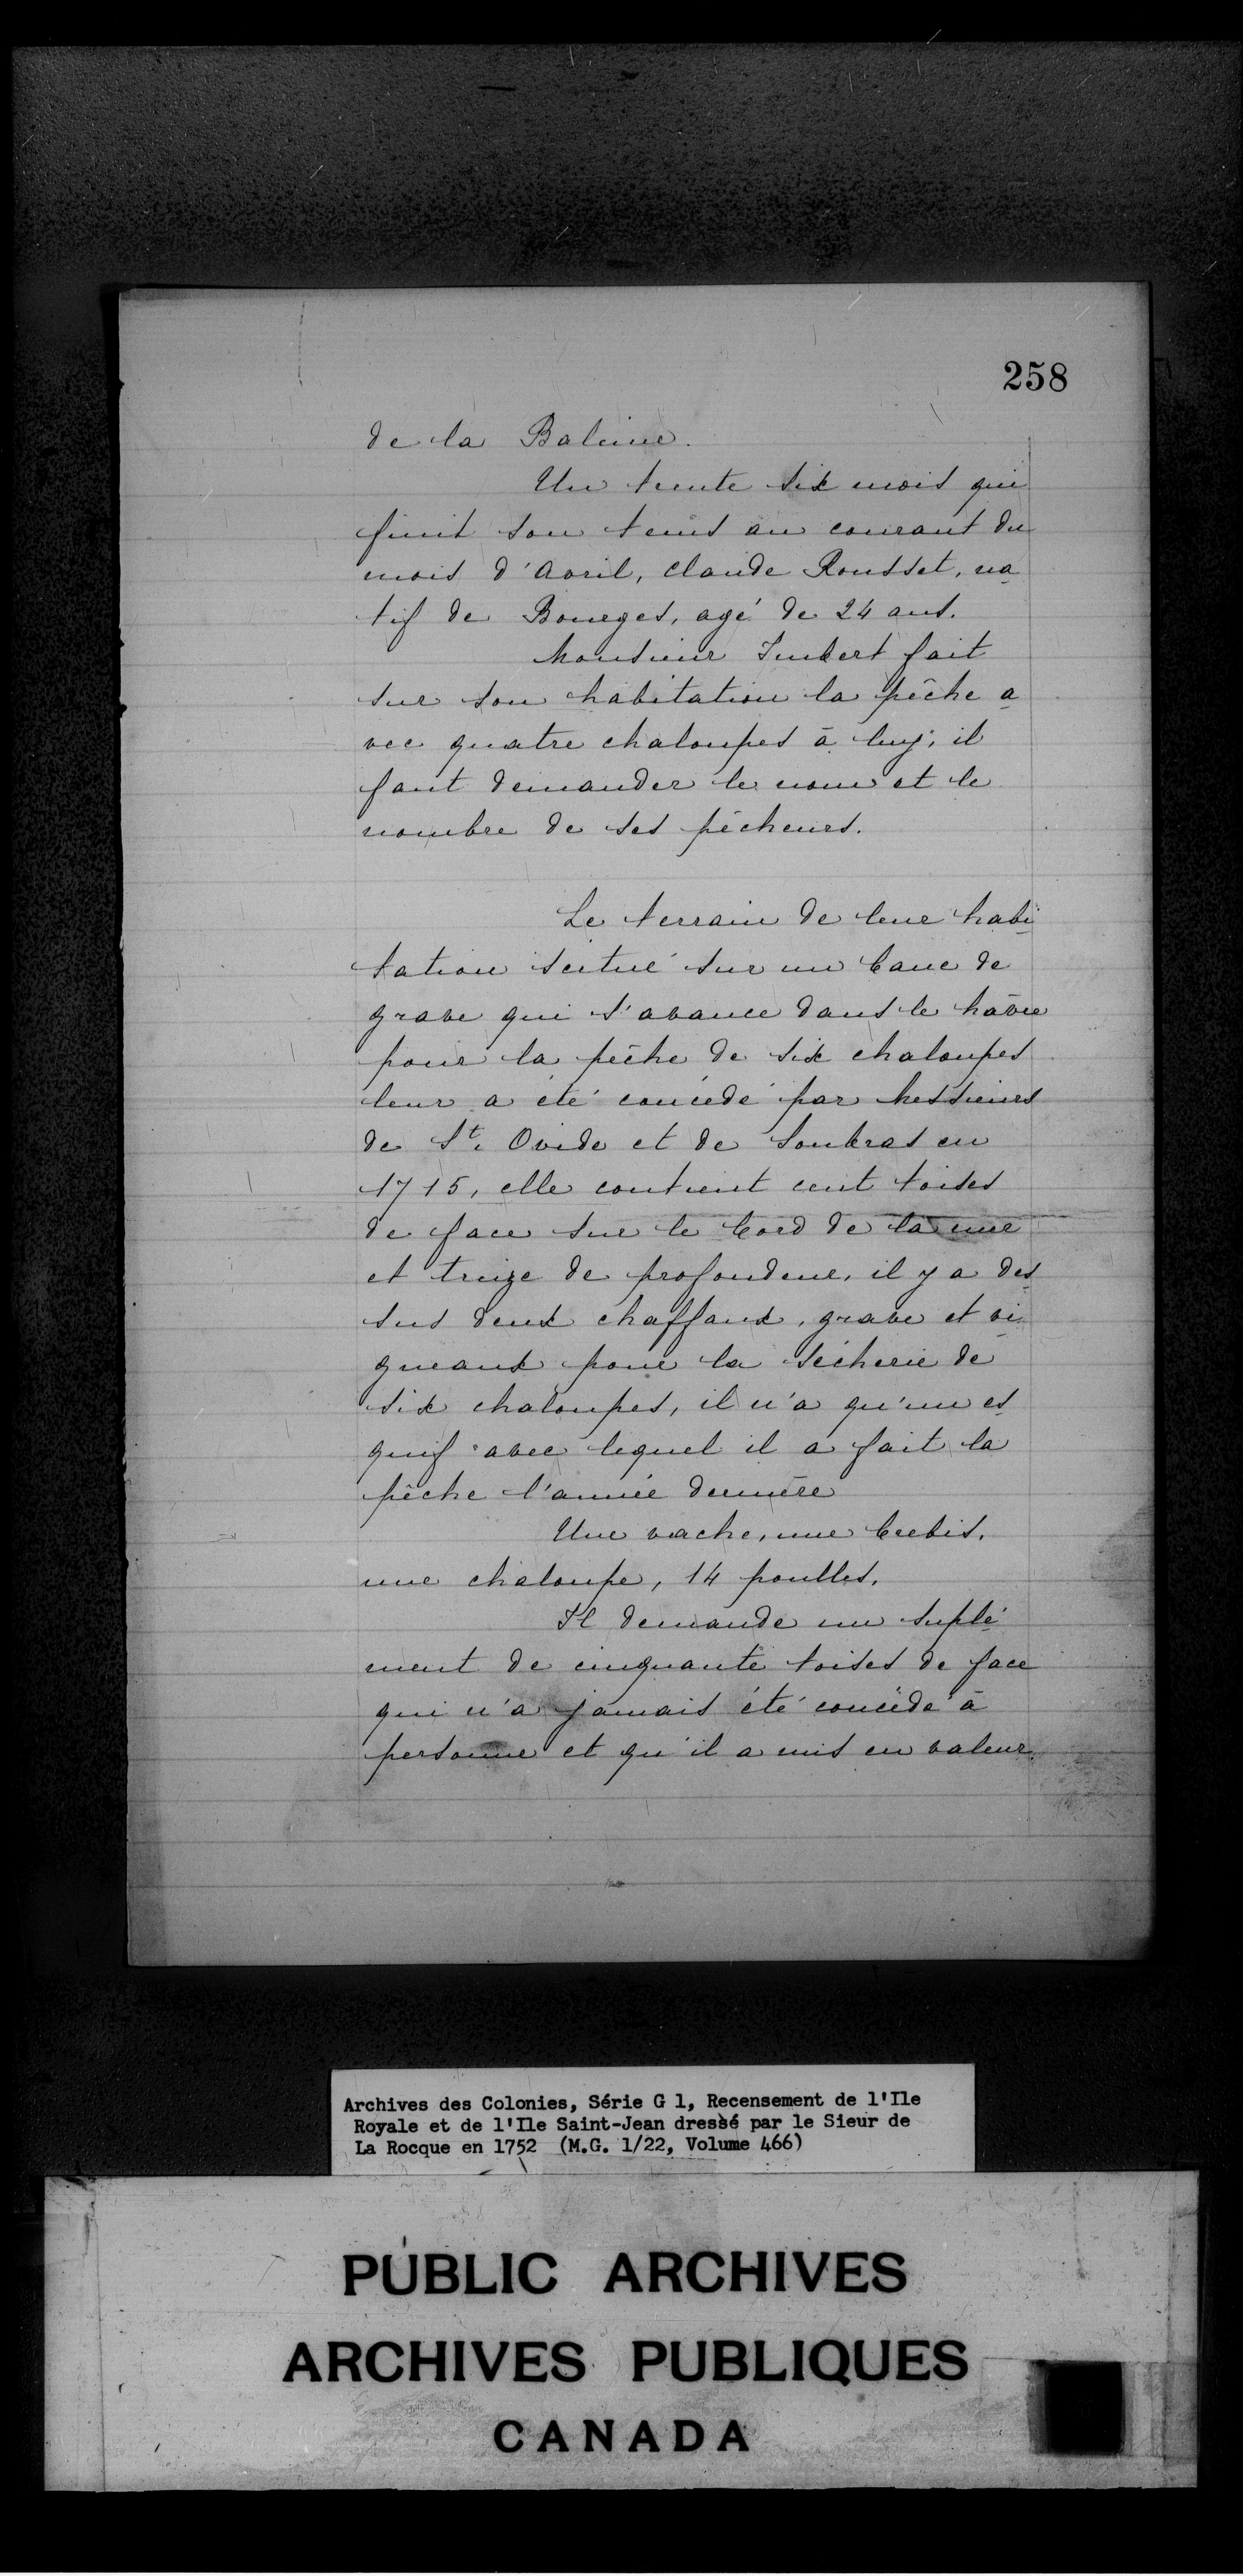 258
de la Baleine.
Un trente six mois qui
finit son tems au courant du
mois d'Avril, Claude Rousset, na
tif de Bourges, agé de 24 ans.
Monsieur Imbert fait
sur son habitation la pêche a
vec quatre chaloupes à luy; il
faut demander le nom et le
nombre de ses pêcheurs.
Le terrain de leur habi
tation scitué sur un banc de
grave qui s'avance dans le hâvre
pour la pêche de six chaloupes
leur a été concédé par Messieurs
de St. Ovide et de Soubras en
1715, elle contient cent toises
de face sur le bord de la mer
et treize de profondeur, il y a des
sus deux chaffaux, grave et vi
gneaux pour la sécherie de
six chaloupes, il n'a qu'un es
quif avec lequel il a fait la
pêche l'année dernière
Une vache, une brebis,
une chaloupe, 14 poulles.
Il demande un suplé
ment de cinquante toises de face
qui n'a jamais été concédé à
personne et qu'il a mis en valeur.
Archives des Colonies, Série G 1, Recensement de l'Ile
Royale et de l'Ile Saint-Jean dressé par le Sieur de
La Rocque en 1752 (M.G. 1/22, Volume 466)
PUBLIC ARCHIVES
ARCHIVES PUBLIQUES
CANADA